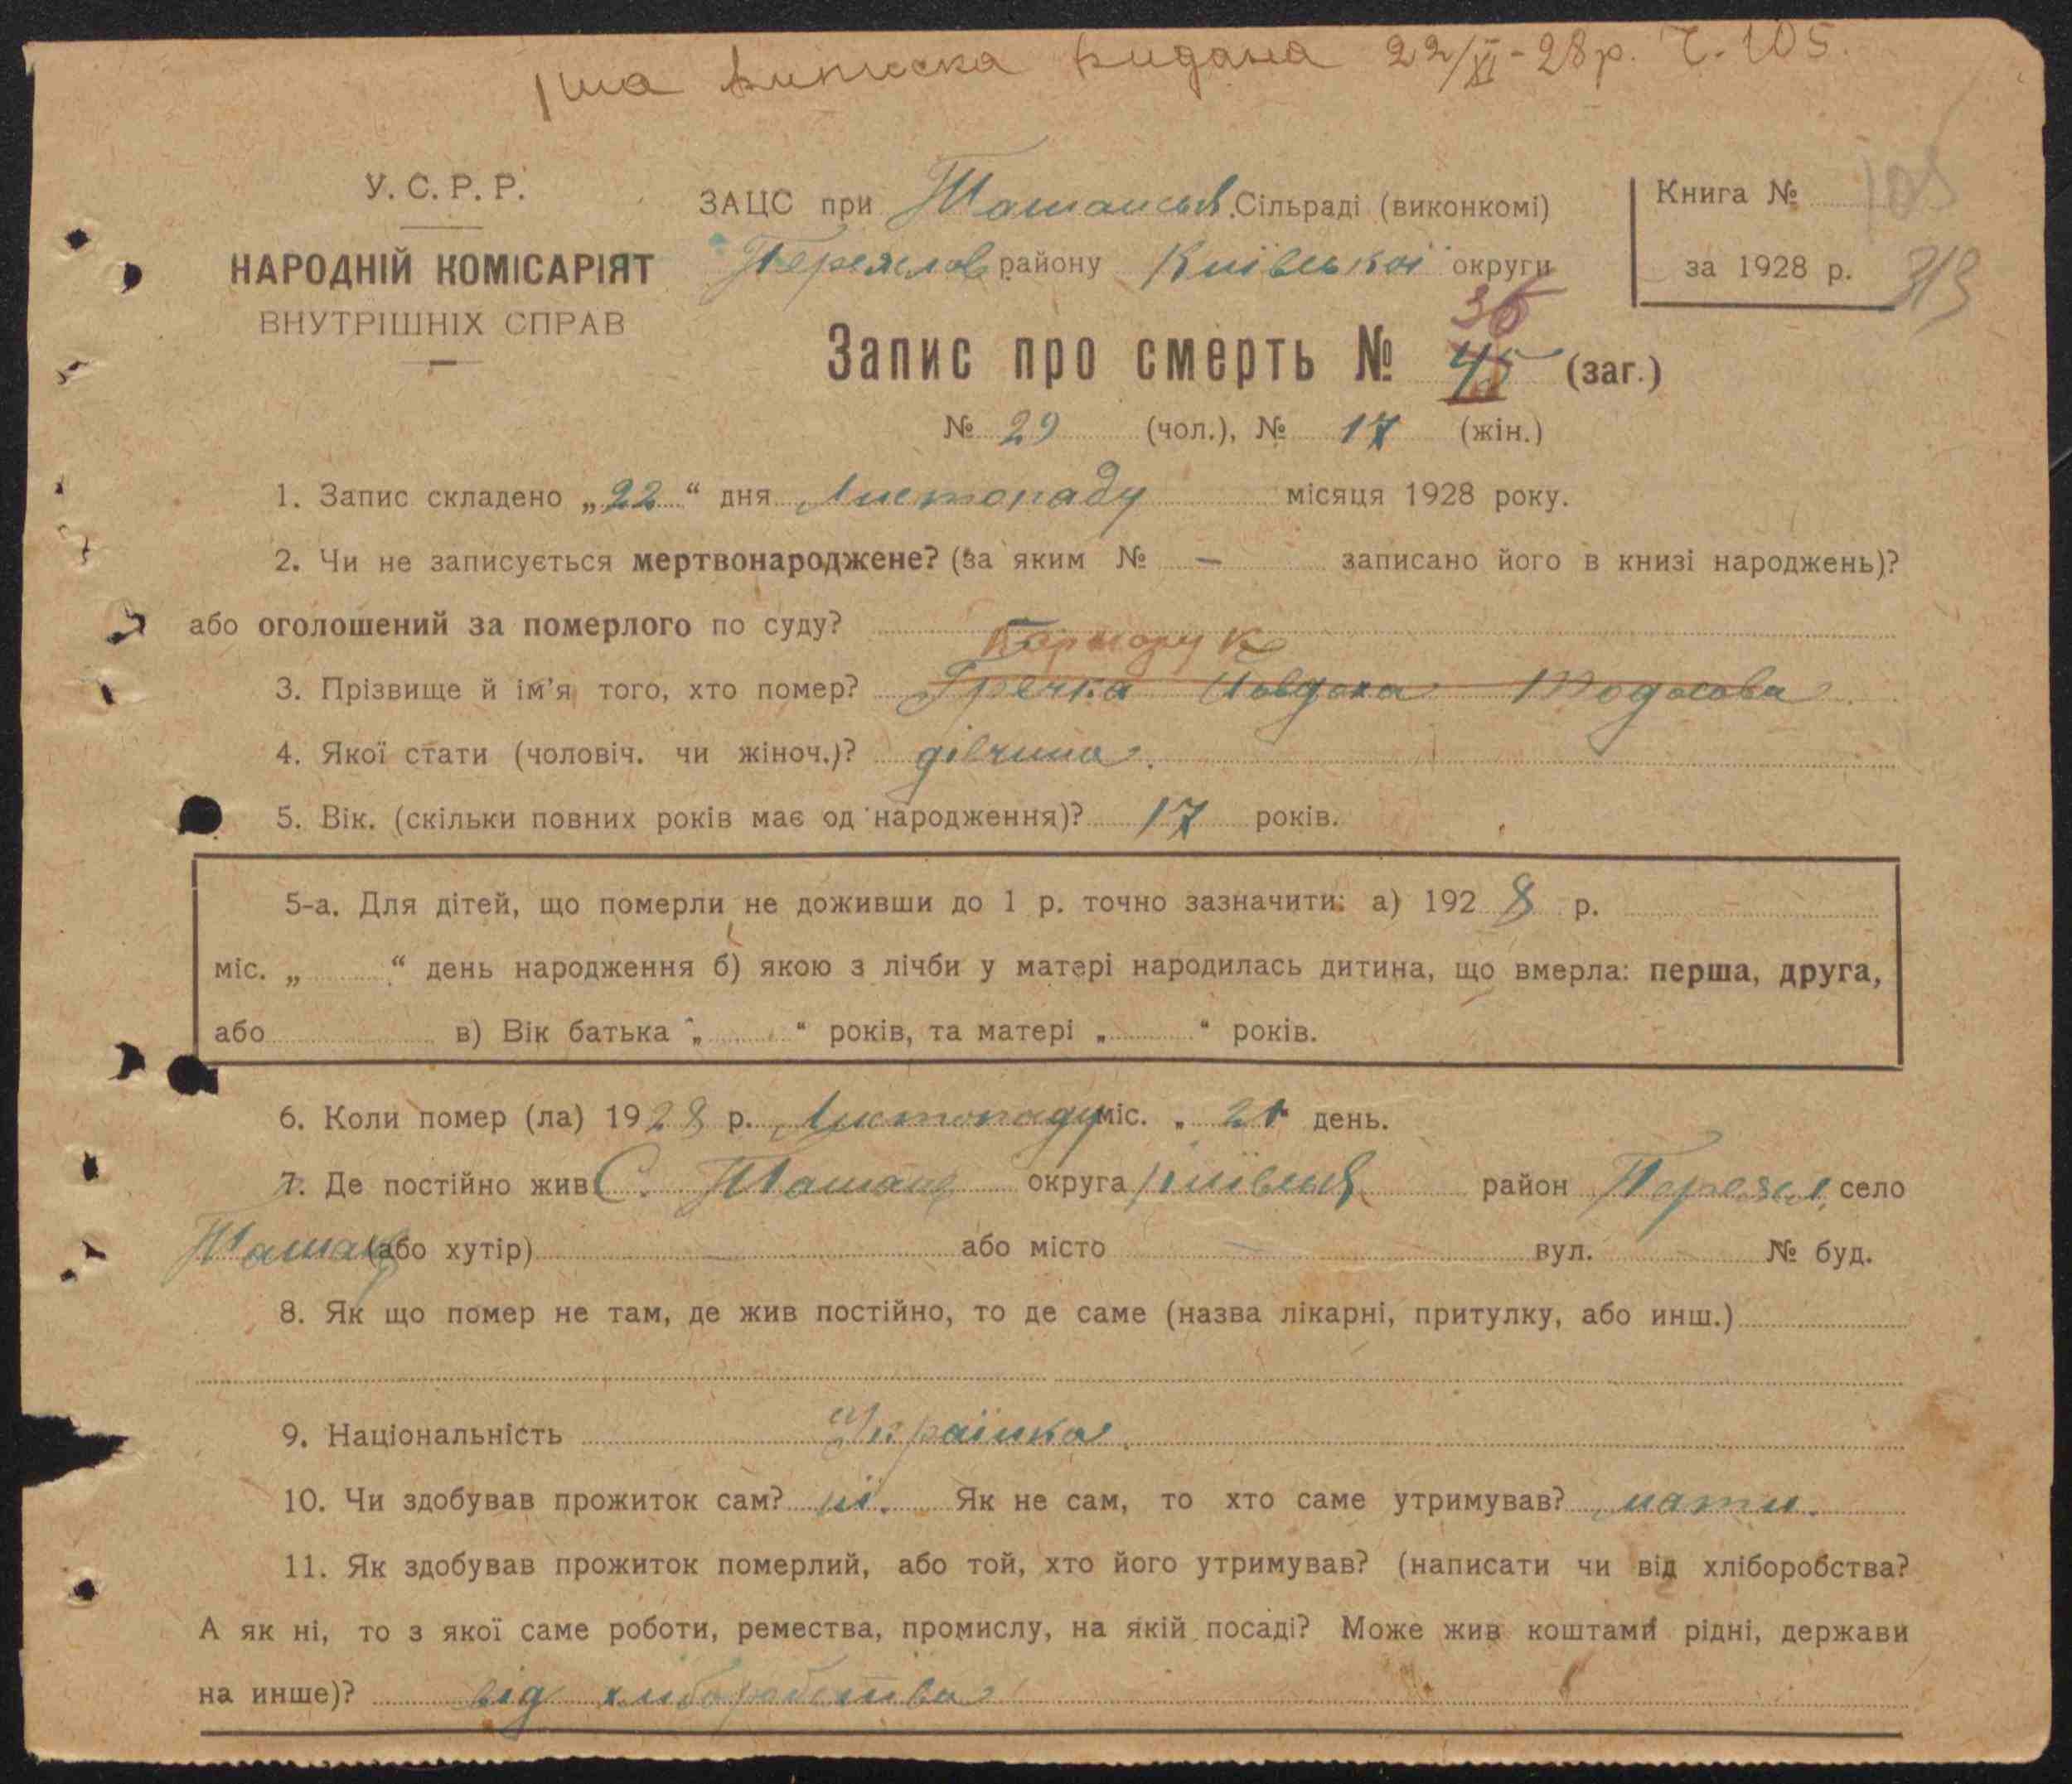 1ша виписка видана 22/XI-28р. Ч. 105.
У. С. Р. Р.
НАРОДНІЙ КОМІСАРІЯТ
ВНУТРІШНІХ СПРАВ
ЗАЦС при Ташанськ. Сільраді (виконкомі)
Переяслов району Київської округи
Книга № 105
за 1928 р. 313
Запис про смерть № 36 45 (заг.)
№ 29 (чол.), № 17 (жін.)
1. Запис складено „22“ дня Листопаду місяця 1928 року.
2. Чи не записується мертвонароджене? (за яким № — записано його в книзі народжень)?
або оголошений за померлого по суду?
3. Прізвище й ім’я того, хто помер? Гречка Явдоха Тодосова
4. Якої стати (чоловіч. чи жіноч.)? дівчина.
5. Вік. (скільки повних років має од народження)? 17 років.
5-а. Для дітей, що померли не доживши до 1 р. точно зазначити: а) 1928 р.
міс. „ “ день народження б) якою з лічби у матері народилась дитина, що вмерла: перша, друга,
або в) Вік батька „ “ років, та матері „ “ років.
6. Коли помер (ла) 1928 р. Листопаду міс. „ 21 день.
7. Де постійно жив С. Ташань округа Київськ. район Переясл. село
Ташань (або хутір) — або місто — вул. — № буд.
8. Як що помер не там, де жив постійно, то де саме (назва лікарні, притулку, або инш.)
9. Національність Українка.
10. Чи здобував прожиток сам? ні. Як не сам, то хто саме утримував? мати.
11. Як здобував прожиток померлий, або той, хто його утримував? (написати чи від хліборобства?
А як ні, то з якої саме роботи, ремества, промислу, на якій посаді? Може жив коштами рідні, держави
на инше)? від хліборобства